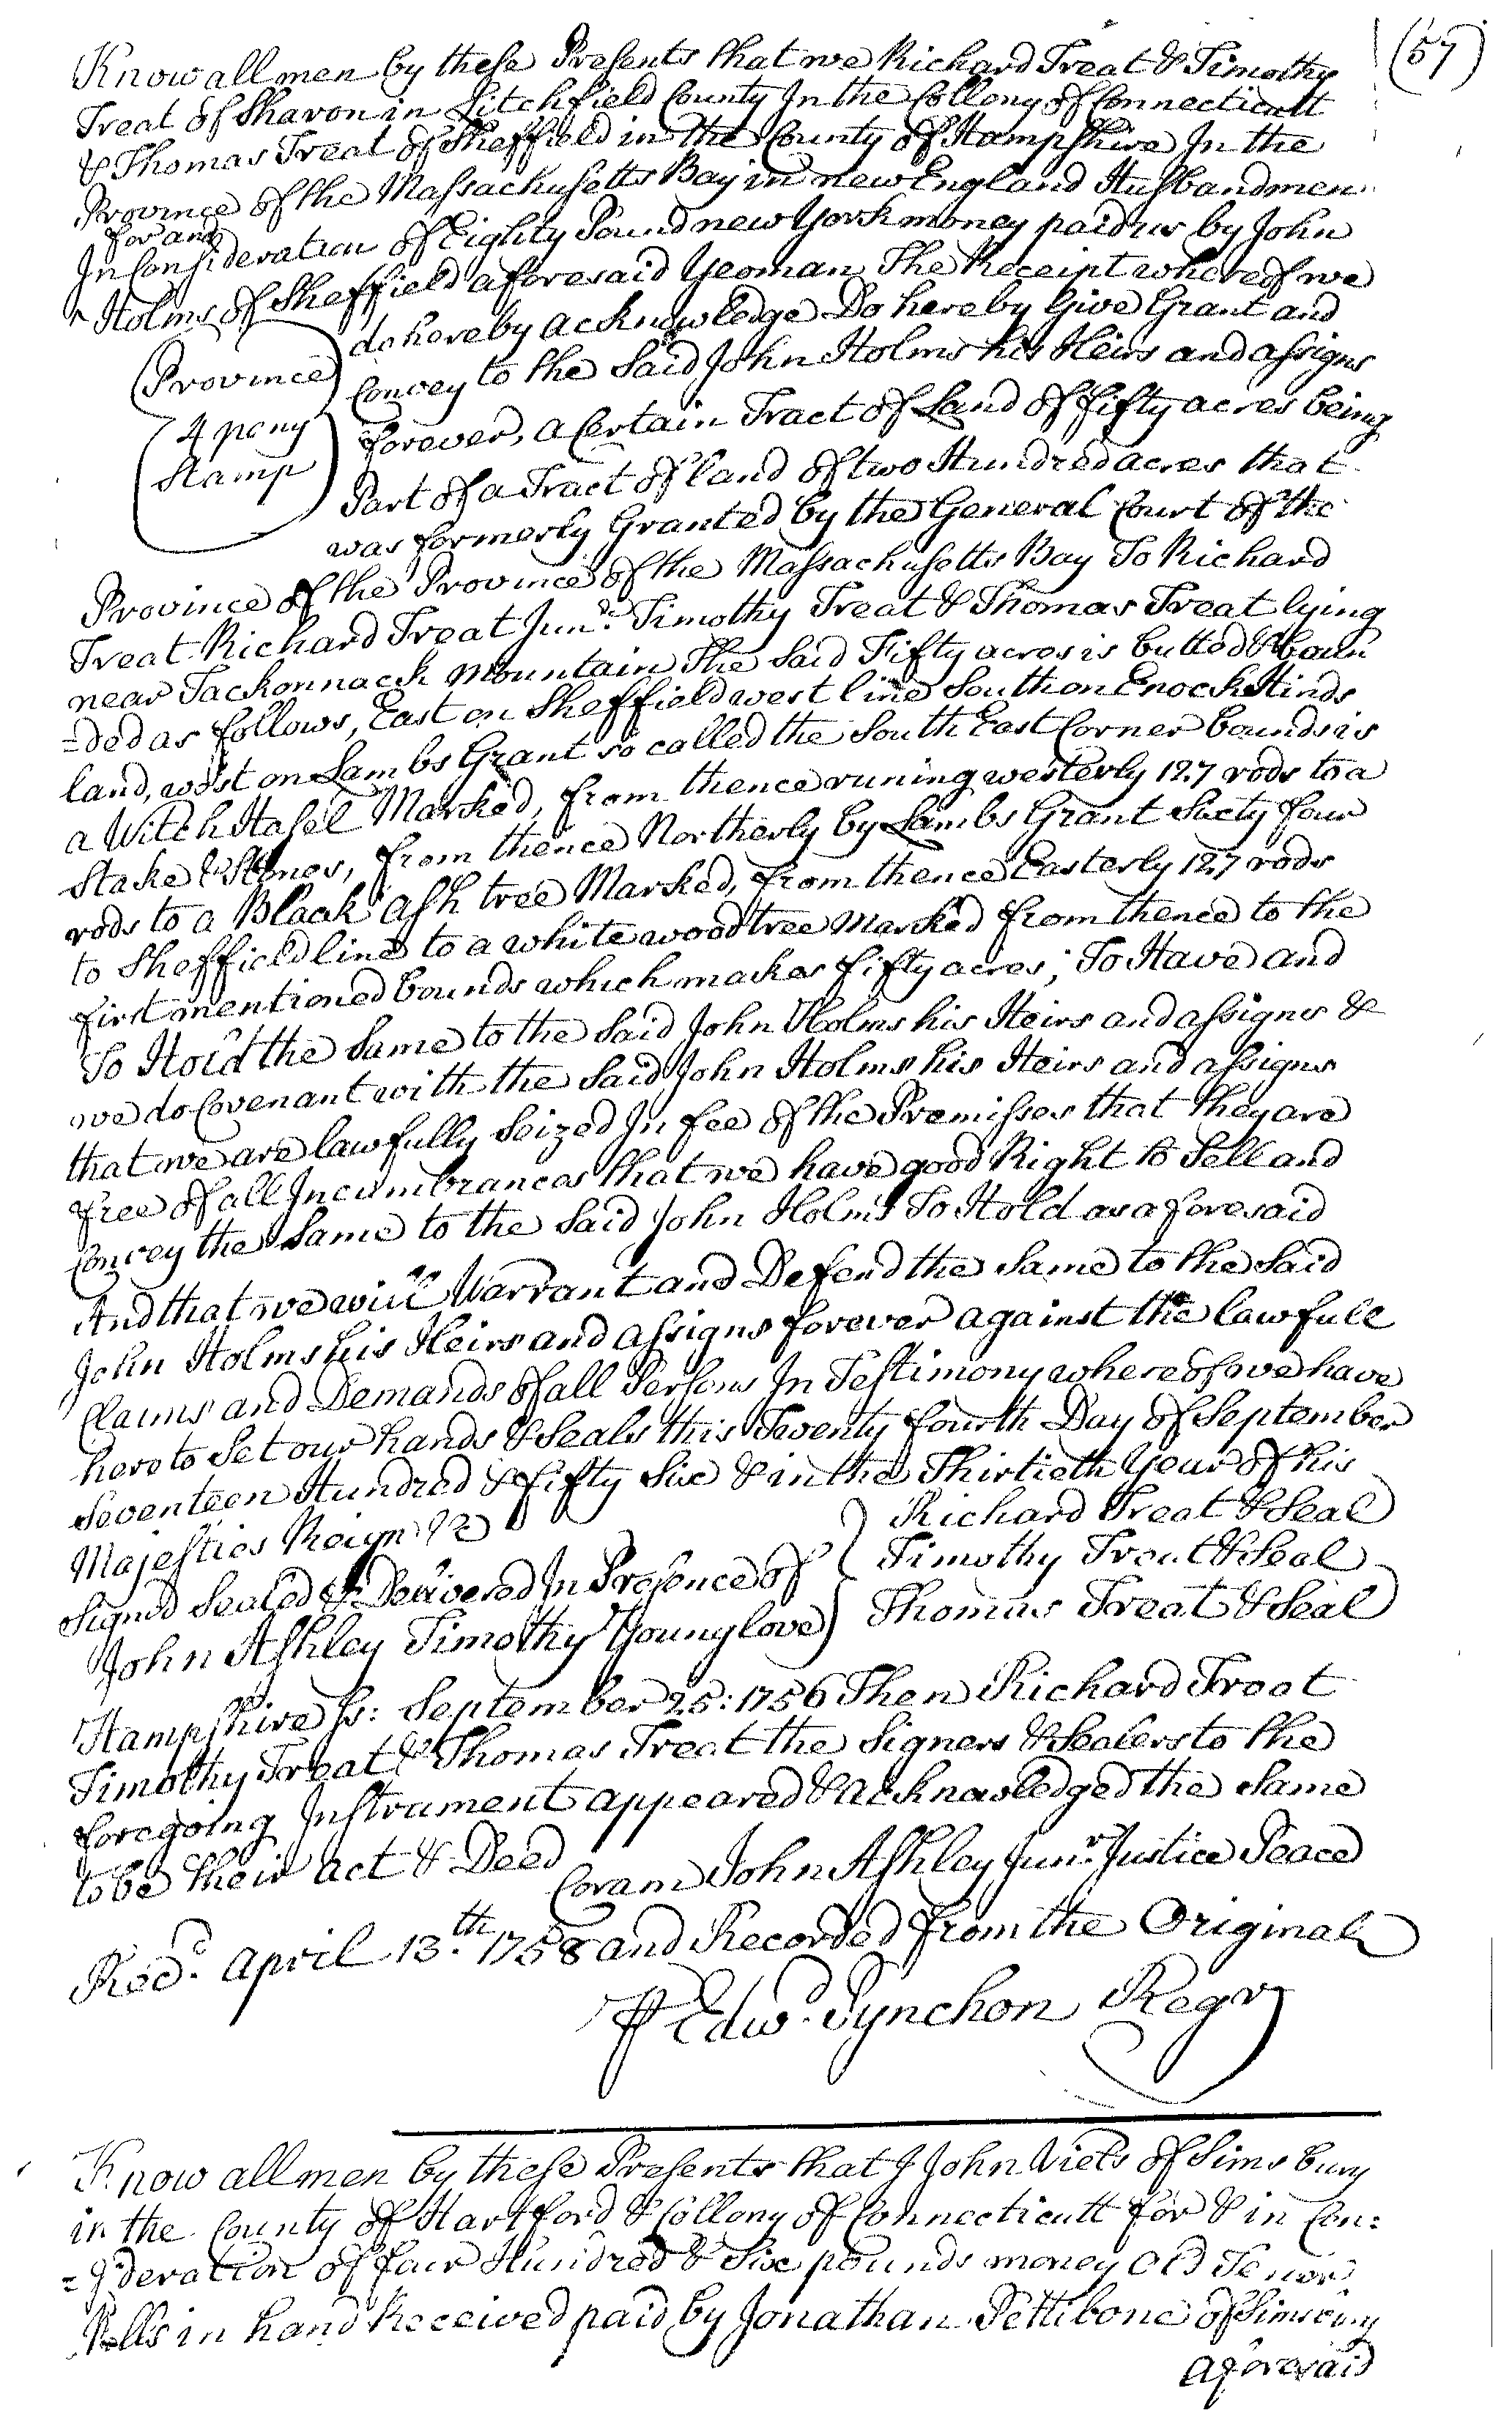 (57)
Know all men by these Presents that we Richard Treat & Timothy
Treat of Sharon in Litchfield County In the Collony of Connecticutt
& Thomas Treat of Sheffield in the County of Hampshire In the
Province of the Massachusetts Bay in new England Husbandmen
for and
In Consideration of Eighty Pound new York money paid us by John
Holms of Sheffield aforesaid Yeoman The Receipt whereof we
do hereby acknowledge Do hereby Give Grant and
(Province)
Convey to the Said John Holms his Heirs and assigns
4 peny
forever, a Certain Tract of Land of fifty acres being
Stamp
Part of a Tract of land of two Hundred acres that
was formerly Granted by the General Court of the
Province of the Province of the Massachusetts Bay To Richard
Treat Richard Treat Junr. Timothy Treat & Thomas Treat lying
near Tackonnack Mountain The Said Fifty acres is butted & boun
=ded as follows, East on Sheffield west line South on Enock Hinds
land, west on Lambs Grant so called the South East Corner bounds is
a Witch Hasel Marked, from thence runing westerly 127 rods to a
Stake & Stones, from thence Northerly by Lambs Grant Sixty four
rods to a Black ash tree Marked, from thence Easterly 127 rods
to Sheffield line to a white wood tree Marked from thence to the
first mentioned bounds which makes fifty acres; To Have and
To Hold the Same to the Said John Holms his Heirs and assigns &
we do Covenant with the Said John Holms his Heirs and assigns
that we are lawfully Seized In fee of the Premisses that they are
free of all Incumbrances that we have good Right to Sell and
Convey the Same to the Said John Holms To Hold as aforesaid
And that we will Warrant and Defend the Same to the Said
John Holms his Heirs and assigns forever against the lawfull
Claims and Demands of all Persons In Testimony whereof we have
hereto Set our hands & Seals this Twenty fourth Day of September
Seventeen Hundred & fifty Six & in the Thirtieth Year of his
Majesties Reign &c
Richard Treat & Seal
Signed Sealed & Delivered In Presence of
Timothy Treat & Seal
John Ashley Timothy Younglove
Thomas Treat & Seal
Hampshire ss: September 25: 1756 Then Richard Treat
Timothy Treat & Thomas Treat the Signers & Sealers to the
foregoing Instrument appeared & acknowledged the Same
to be their act & Deed
Coram John Ashley Junr. Justice Peace
Recd. April 13.th 1758 and Recorded from the Original
⅌ Edwd. Pynchon Regr
Know all men by these Presents that I John Viets of Simsbury
in the County of Hartford & Collony of Connecticutt for & in Con:
=sideration of four Hundred & Six pounds money Old Tenor
Bills in hand Received paid by Jonathan Pettibone of Simsbury
aforesaid